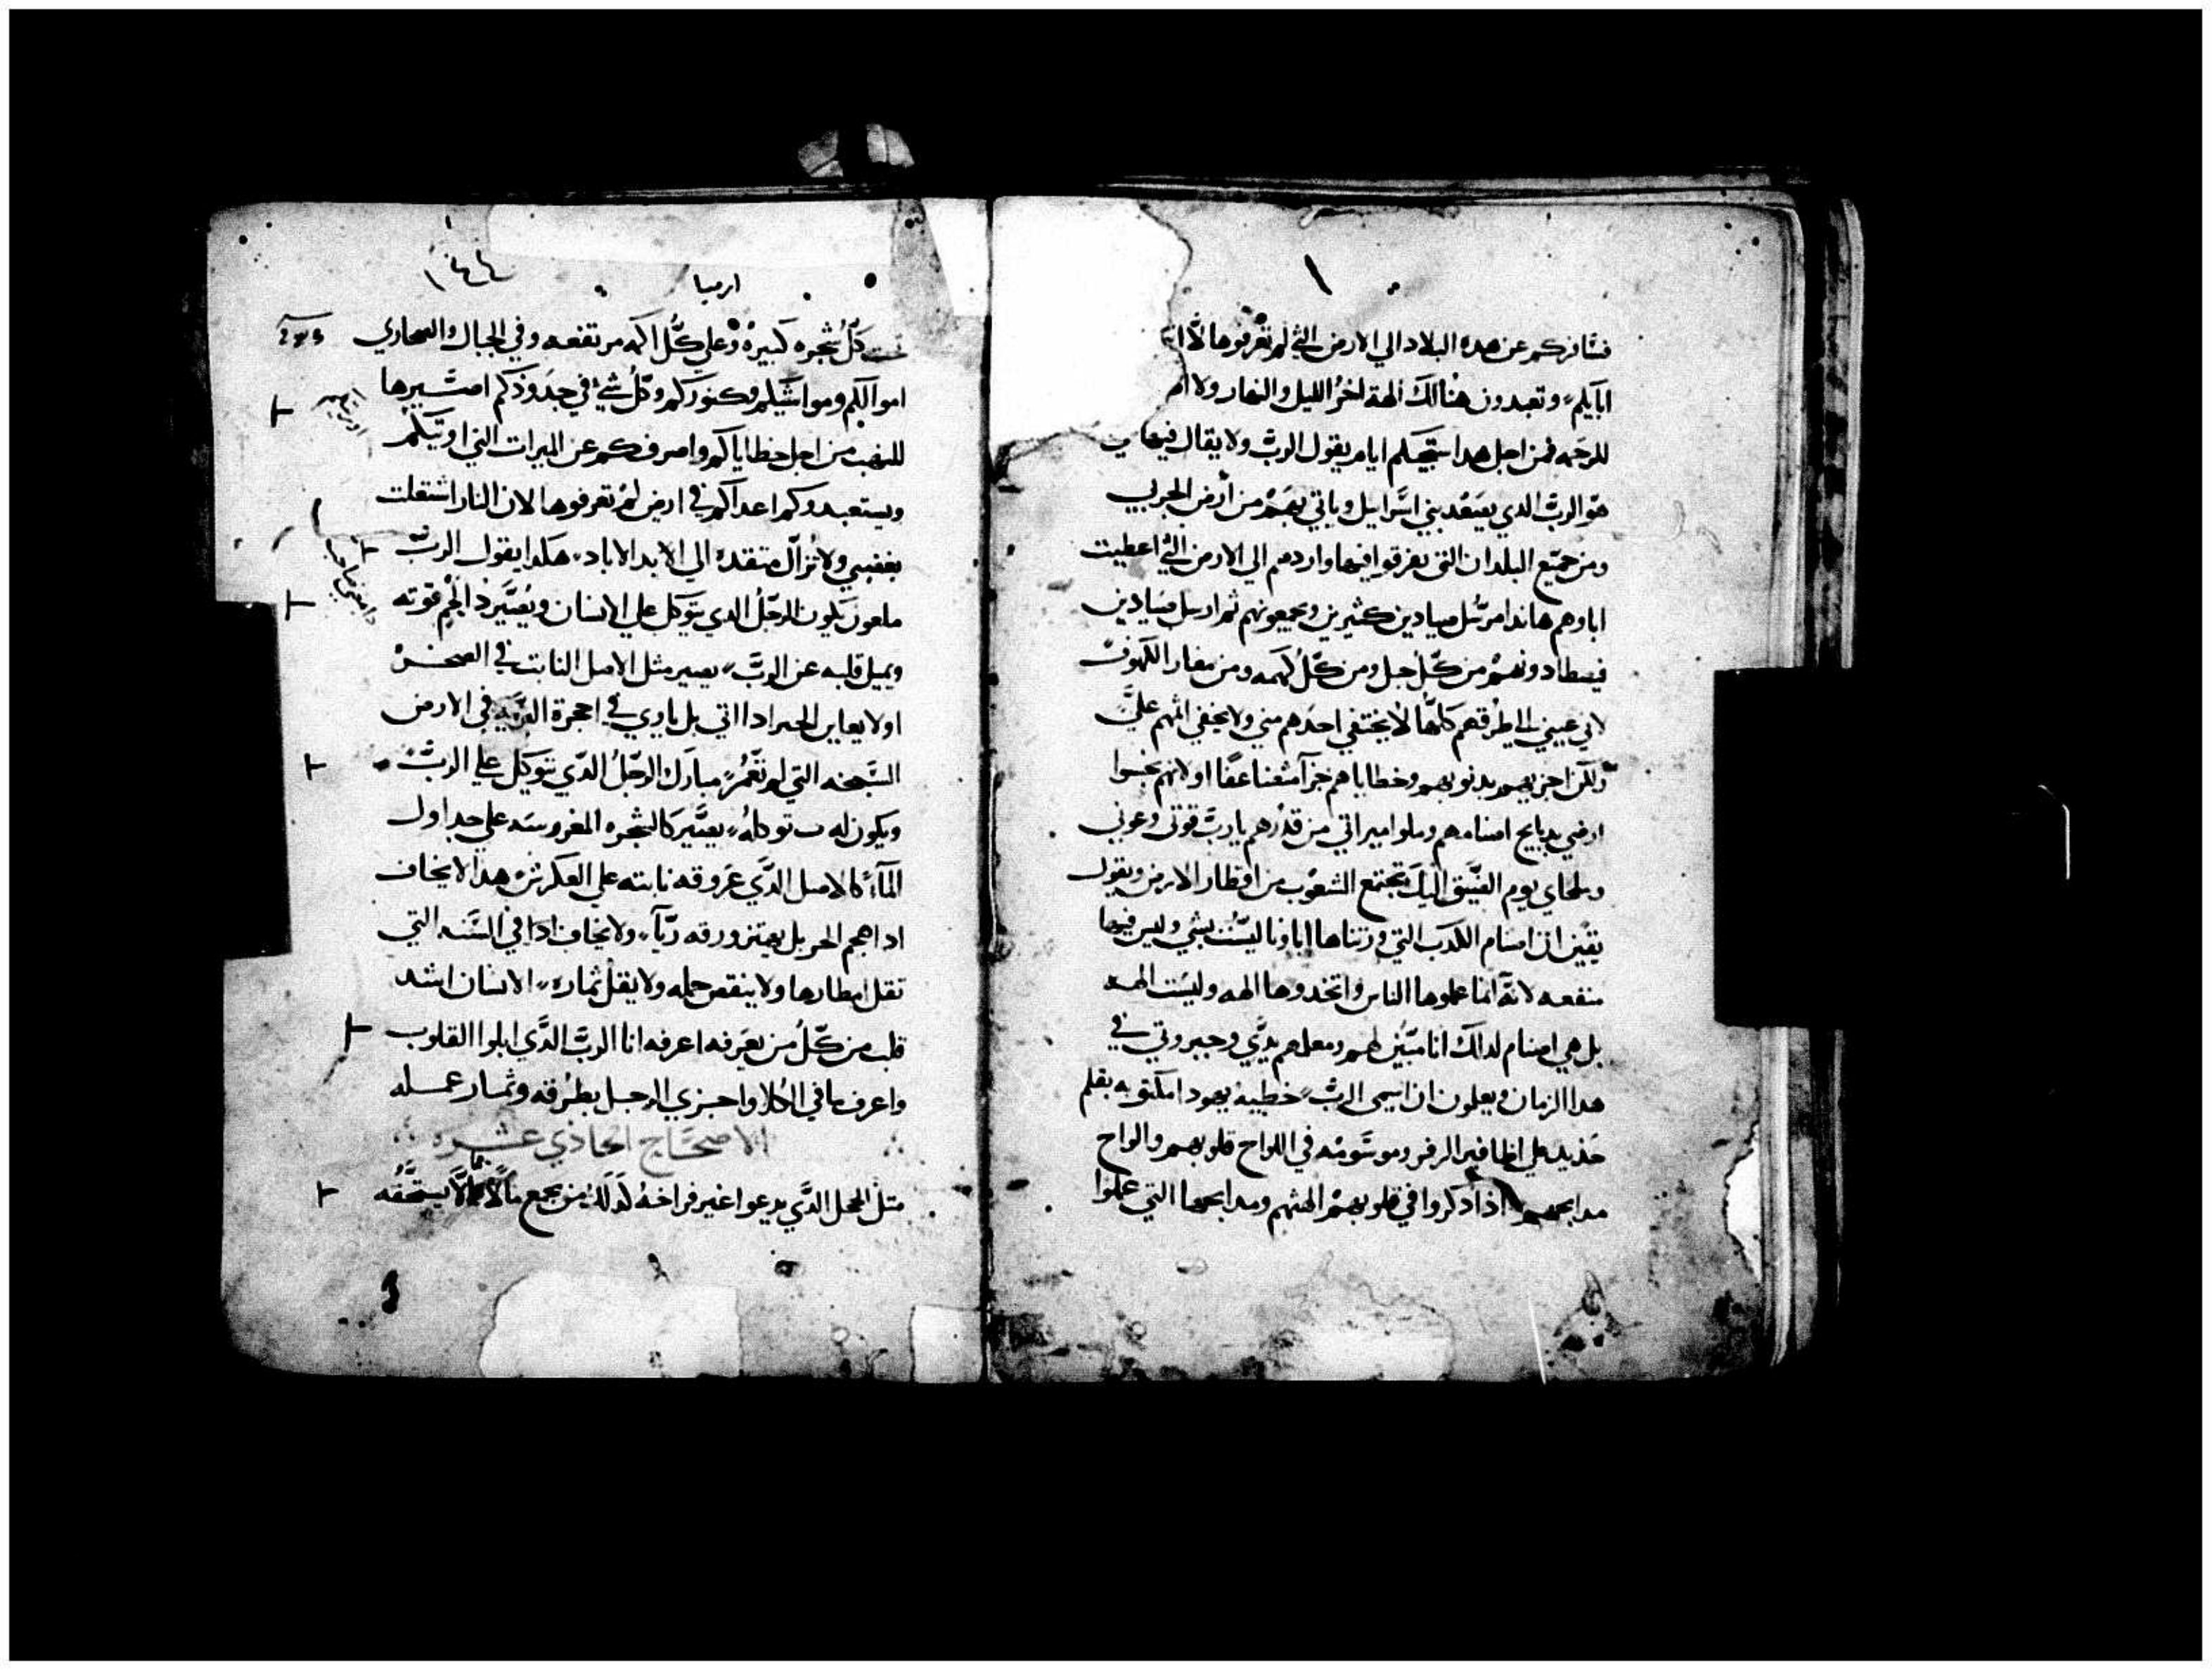 فسافركم عن هده البلاد الي الارض التي لم تعرفوها لا
ابايكم وتعبدون هنالك الهة اخر الليل والنهار ولا
للرحمه فمن اجل هدا ستجيكم ايام يقول الرب ولا يقال فيها
هو الرب الدي يصعد بني اسراييل وياتي بهم من ارض الجربي
ومن جميع البلدان التي يفرقوا فيها واردهم الي الارض التي اعطيت
اباوهم هاندا مرسل صيادين كثيرين ويجمعونهم ثم ارسل صيادين
فيصطادونهم من كل جبل ومن كل اكمه ومن مغار الكهوف
لاني عيني الي طرقهم كلها لا يختفي احدهم مني ولا يخفي اثمهم علي
ولكن اجزيهم بدنوبهم وخطاياهم جزآ مضعنا عفا اولا انهم نجسوا
ارضي بدبايح اصنامهم وملوا ميراتي من قدرهم يا رب قوتي وعوني
وملجاي يوم الضيق اليك تجتمع الشعوب من اقطار الارض ويقول
يقين ان اصنام الكدب التي ورتناها اباونا ليست بشي وليس فيها
منفعه لانه انما عملوها الناس واتخدوها الهه وليست الهه
بل هي اصنام لدلك انا مبين لهم ومعلمهم يدي وجبروتي في
هدا الزمان ويعلمون ان اسمي الرب خطية يهودا مكتوبه بقلم
حديد علي اظافير الرفر وموسومه في الالواح قلوبهم والواح
مدابحهم اذا دكروا في قلوبهم الهتهم ومدابحها التي عملوا
ارميا
١٤٤
تحت كل شجره كبيره وعلي كل اكمه مرتفعه وفي الجبال والصحاري
اموالكم ومواشيكم وكنوزكم وكل شي في حدودكم اصيرها
للنهب من اجل خطاياكم واصرفكم عن الميرات التي اورتكم
ويستعبدوكم اعداكم في ارض لم تعرفوها لان النار اشتعلت
بغضبي ولا تزال متقده الي الابد الاباد هكدا يقول الرب
ملعون يكون الرجل الدي يتوكل علي الانسان ويصير ذا لحم قوته
ويميل قلبه عن الرب يصير مثل الاصل النابت في الصخره
اولا يعاين الخير ادا اتي بل ياوي في احجرة البريه في الارض
السبخه التي لم تعمر مبارك الرجل الدي توكل علي الرب
ويكون له ب توكله يصير كالشجره المغروسه علي جداول
المآء كالاصل الدي عروقه نابته علي العكرش هدا لا يخاف
ادا هجم الحر بل يهتز ورقه ريآ ولا يخاف ادا في السنه التي
تقل امطارها ولا ينقص حمله ولا يقل ثماره الانسان اشد
قلب من كل من يعرفه اعرفه انا الرب الدي ابلوا القلوب
واعرف ما في الكلا واجزي الرجل بطرقه وثمار عمله
الاصحاح الحاذي عشره
متل الحجل الدي يدعوا غير فراخه كدلك من يجمع مالا لا يستحقه